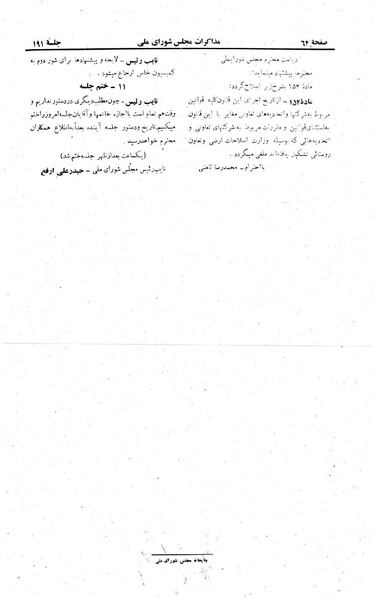 صفحهٔ ۶۴
مذاکرات مجلس شورای ملی
جلسهٔ ۱۹۱
ریاست محترم مجلس شورایملی
محترماً پیشنهاد مینماید:
مادهٔ ۱۵۴ بشرح زیر اصلاح گردد:
مادهٔ ۱۵۴ـ از تاریخ اجرای این قانون کلیه قوانین
مربوط به شرکتها و اتحادیه‌های تعاونی مغایر با این قانون
به‌استثنای قوانین و مقررات مربوط به شرکتهای تعاونی و
اتحادیه‌هائی که بوسیله وزارت اصلاحات ارضی و تعاون
روستائی تشکیل یافته‌اند ملغی میگردد.
با احترام ـ محمدرضا ثامنی
نایب رئیس ـ لایحه و پیشنهادها برای شور دوم به
کمیسیون خاص ارجاع میشود.
۱۱ ـ ختم جلسه
نایب رئیس ـ چون مطلب دیگری در دستور نداریم و
وقت هم تمام است با اجازه خانمها و آقایان جلسه امروز را ختم
میکنیم، تاریخ و دستور جلسه آینده بعداً به اطلاع همکاران
محترم خواهد رسید.
(یکساعت بعد از ظهر جلسه ختم شد)
نایب رئیس مجلس شورای ملی ـ حیدرعلی ارفع
چاپخانه مجلس شورای ملی